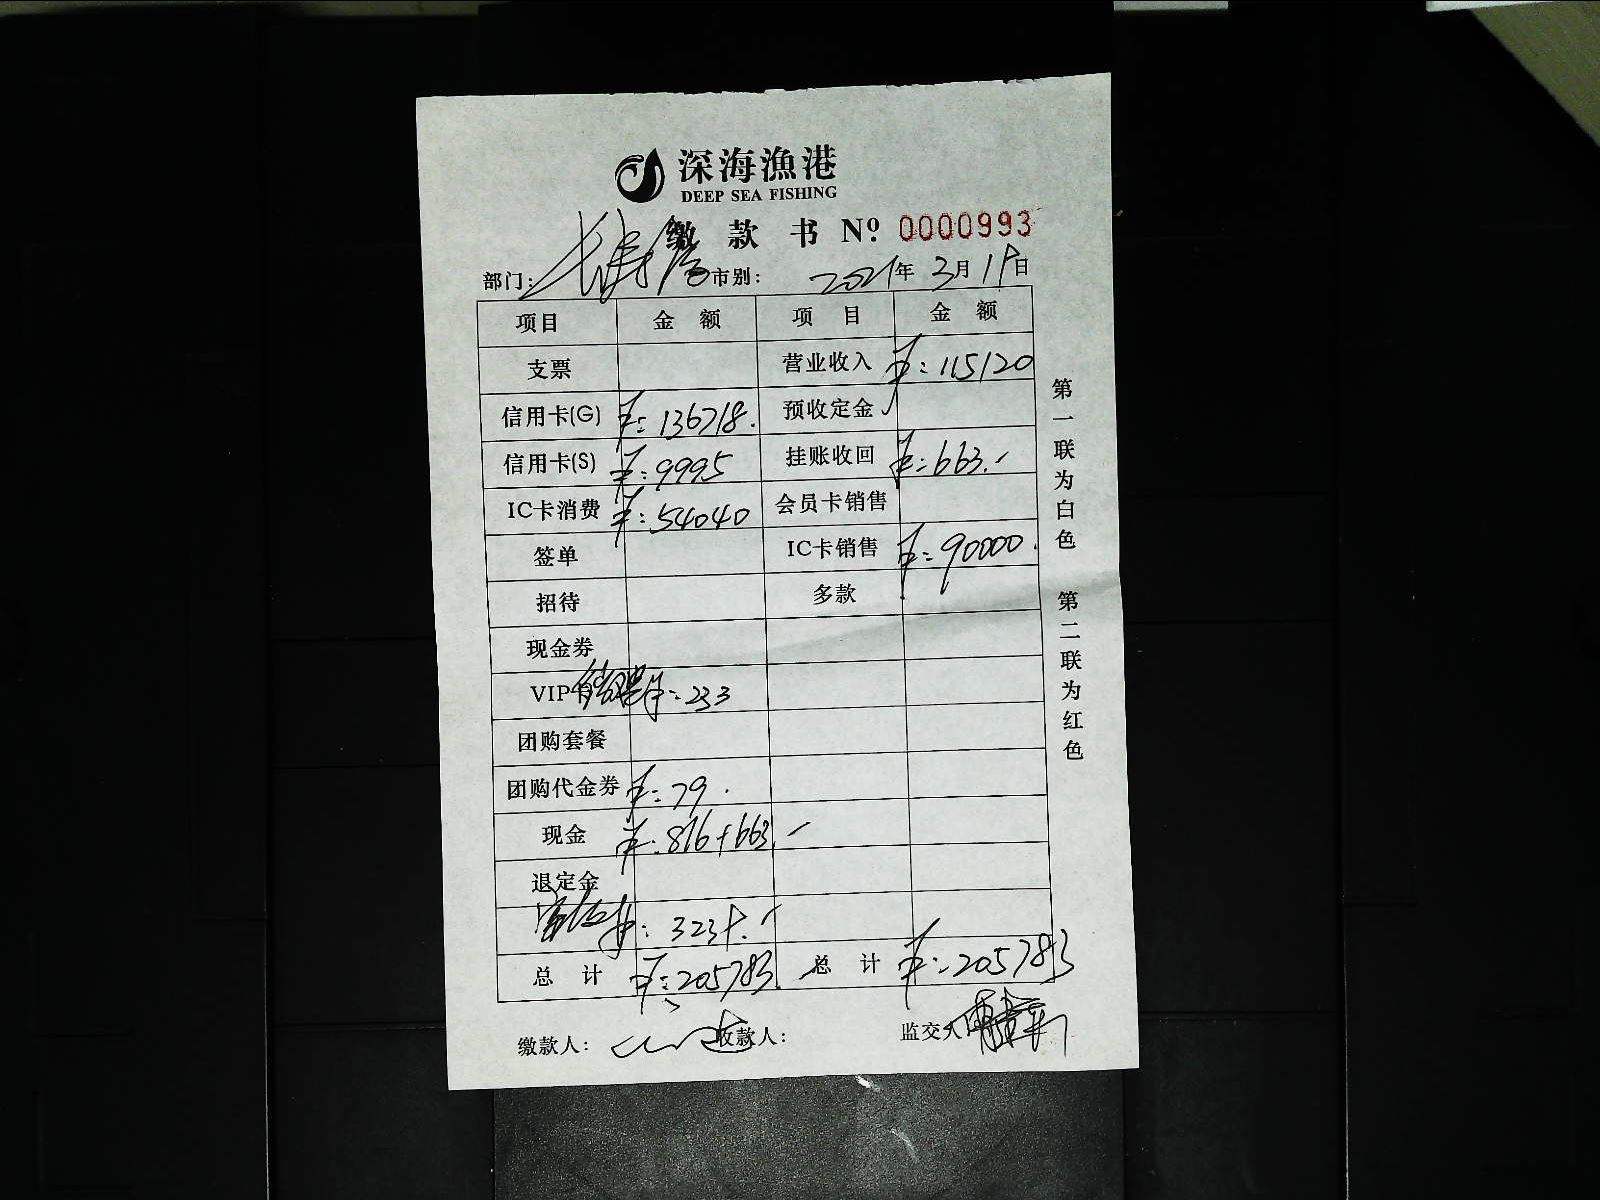 深海漁港
DEEP SEA FISHING
缴 款 书 Nº 0000993
部门: 市别: 2021年3月19日
项目 金 额 项 目 金 额
支票 营业收入 ¥:115120
信用卡(G) ¥:136718. 预收定金
信用卡(S) ¥:9995 挂账收回 ¥:663.-
IC卡消费 ¥:54040 会员卡销售
签单 IC卡销售 ¥:90000.
招待 多款
现金券
VIP卡 ¥:233
团购套餐
团购代金券 ¥:79.
现金 ¥:816+663.-
退定金
¥:3239.-
总 计 ¥:205783. 总 计 ¥:205783
缴款人: 收款人: 监交人
第一联为白色 第二联为红色